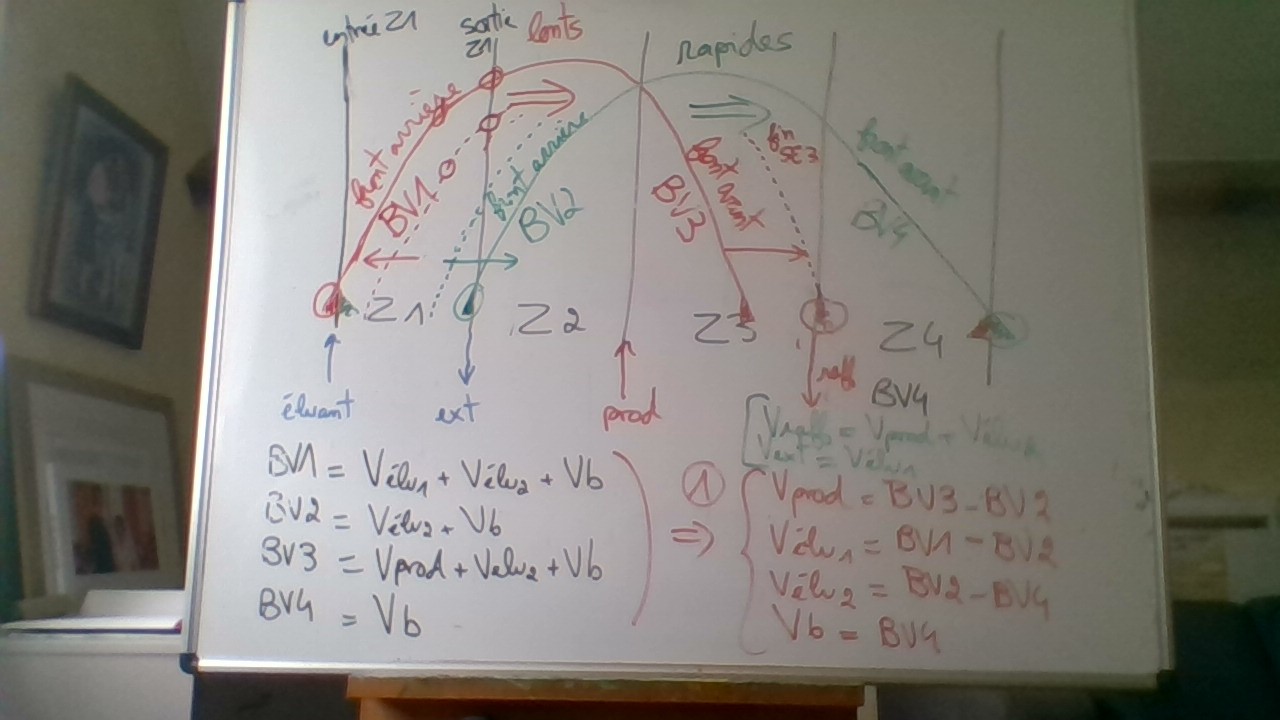 entrée Z1
sortie Z1
lents
rapides
front arrière
BV1
front arrière
BV2
front avant
BV3
fin SE3
front avant
BV4
Z1
Z2
Z3
Z4
éluant
ext
prod
raff
BV4
Vraff = Vprod + Vélu2
Vext = Vélu1
BV1 = Vélu1 + Vélu2 + Vb
BV2 = Vélu2 + Vb
BV3 = Vprod + Vélu2 + Vb
BV4 = Vb
⇒
①
Vprod = BV3 - BV2
Vélu1 = BV1 - BV2
Vélu2 = BV2 - BV4
Vb = BV4